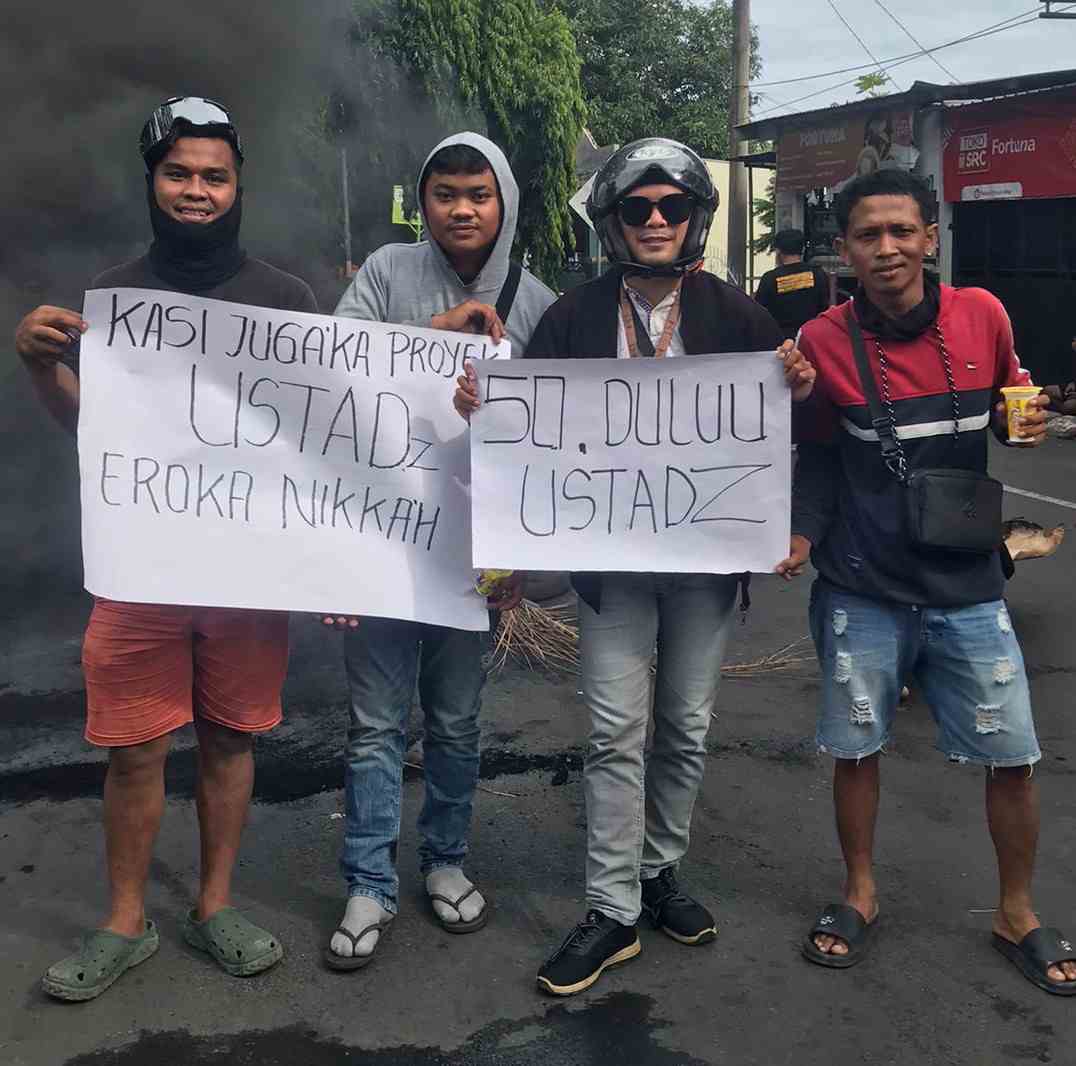 KASI JUGA'KA PROYEK
USTADz
EROKA NIKKA'H
50. DULUU
USTADZ
FORTUNA
TOKO
SRC
Fortuna